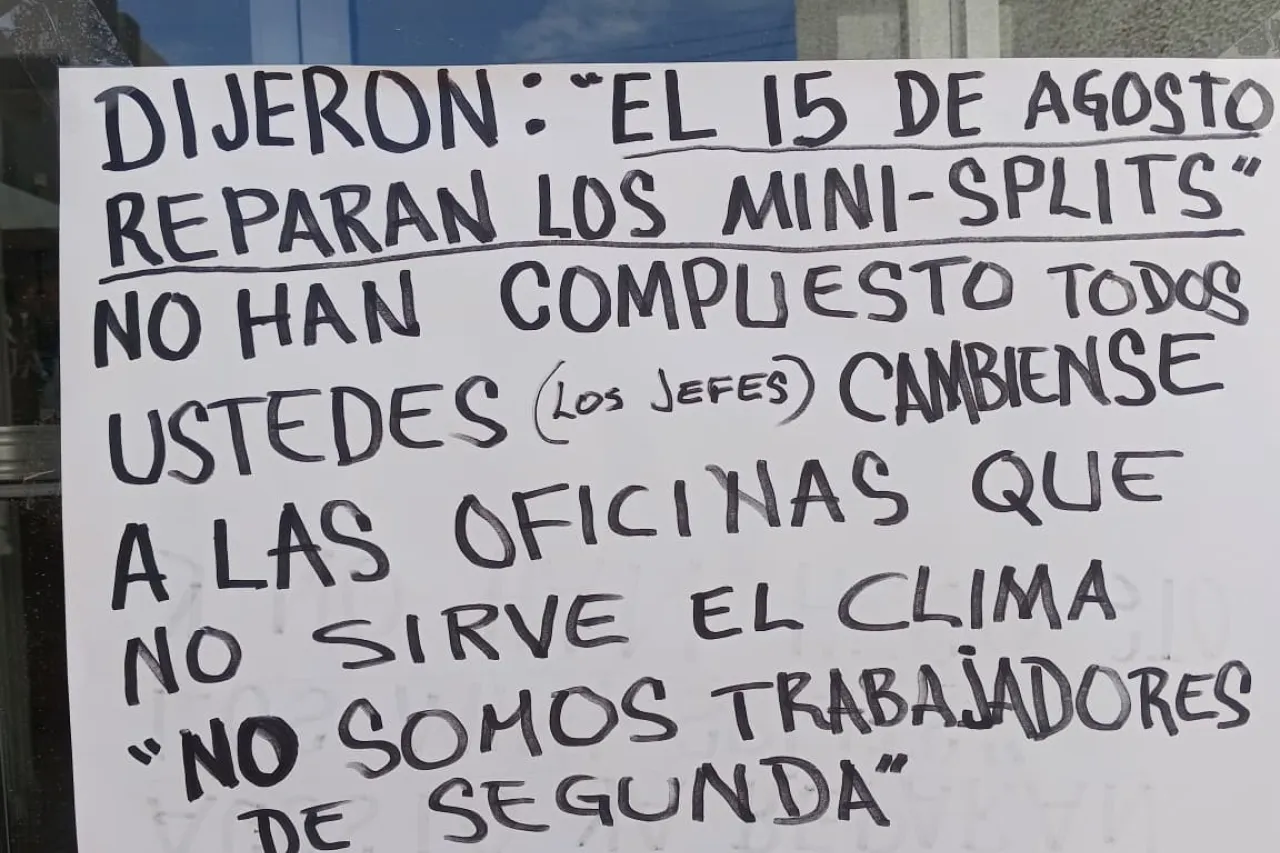 DIJERON: "EL 15 DE AGOSTO
REPARAN LOS MINI-SPLITS"
NO HAN COMPUESTO TODOS
USTEDES (LOS JEFES) CAMBIENSE
A LAS OFICINAS QUE
NO SIRVE EL CLIMA
"NO SOMOS TRABAJADORES
DE SEGUNDA"